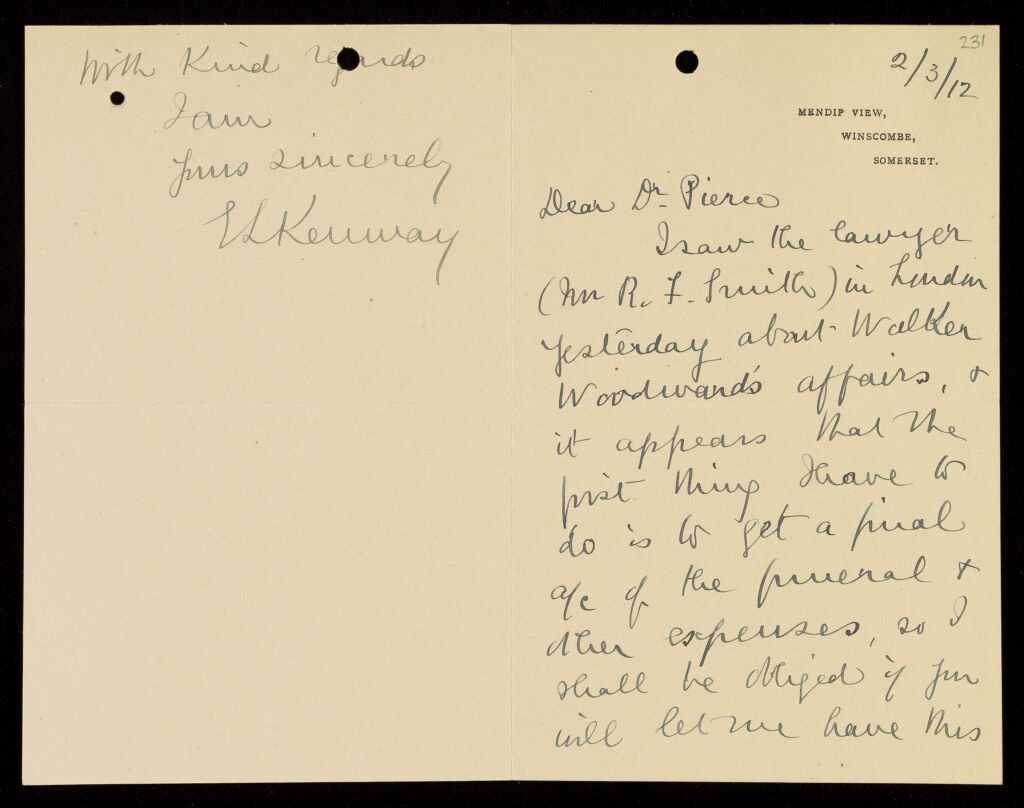 231
2/3/12
MENDIP VIEW,
WINSCOMBE,
SOMERSET.
Dear Dr. Pierce
I saw the lawyer
(Mr R. F. Smith) in London
yesterday about Walker
Woodward's affairs, &
it appears that the
first thing I have to
do is to get a final
a/c of the funeral &
other expenses, so I
shall be obliged if you
will let me have this
With Kind regards
I am
Yours sincerely
E L Kenway